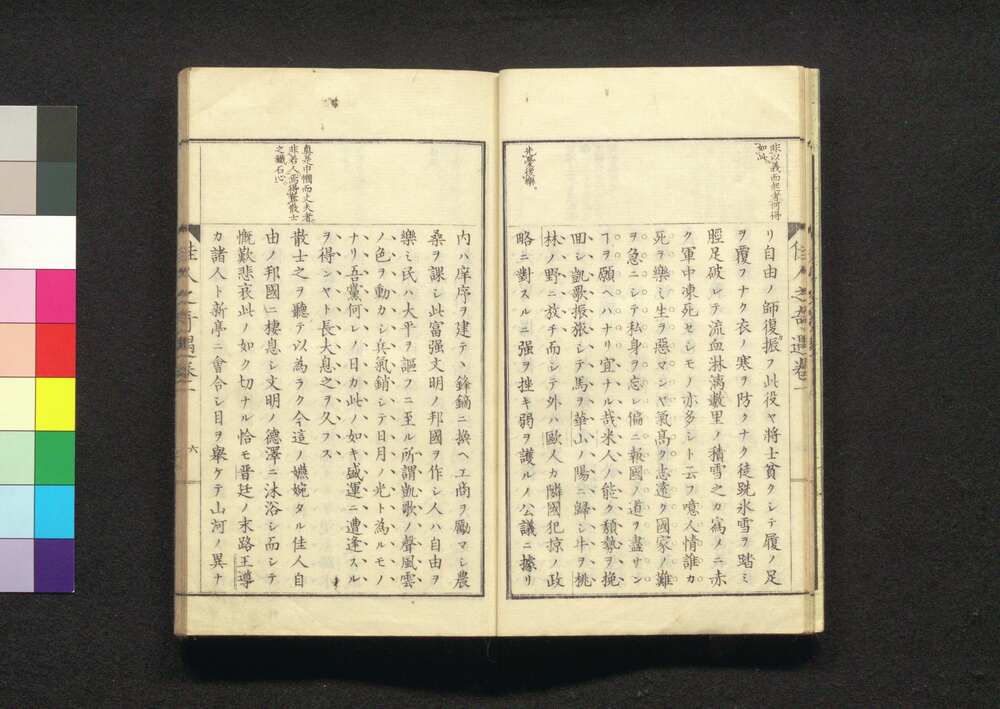 非以義而起者何得
如此
先憂後樂。
リ自由ノ師復振フ此役ヤ將士貧クシテ履ノ足
ヲ覆フナク衣ノ寒ヲ防クナク徒跣氷雪ヲ踏ミ
脛足破レテ流血淋漓數里ノ積雪之カ爲メニ赤
ク軍中凍死セシモノ亦多シト云フ噫人情誰カ
死ヲ樂ミ生ヲ惡マンヤ氣髙ク志遠ク國家ノ難
ヲ急ニシテ私身ヲ忘レ偏ニ報國ノ道ヲ盡サン
ヿヲ願ヘハナリ宜ナル哉米人ノ能ク頽勢ヲ挽
回シ凱歌振旅シテ馬ヲ華山ノ陽ニ歸シ牛ヲ桃
林ノ野ニ放チ而シテ外ハ歐人カ隣國犯掠ノ政
略ニ對スルニ强ヲ挫キ弱ヲ護ルノ公議ニ據リ
佳人之奇遇卷一
眞是巾幗而丈夫者
非若人焉得奪散士
之鐵石心
內ハ庠序ヲ建テヽ鋒鏑ニ換ヘ工商ヲ勵マシ農
桑ヲ課シ此富强文明ノ邦國ヲ作シ人ハ自由ヲ
樂ミ民ハ大平ヲ謳フニ至ル所謂凱歌ノ聲風雲
ノ色ヲ動カシ兵氣銷シテ日月ノ光ト爲ルモノ
ナリ吾黨何レノ日カ此ノ如キ盛運ニ遭逢スル
ヲ得ンヤト長大息之ヲ久フス
散士之ヲ聽テ以爲ラク今這ノ嬿婉タル佳人自
由ノ邦國ニ棲息シ文明ノ德澤ニ沐浴シ而シテ
慨歎悲哀此ノ如ク切ナル恰モ晋廷ノ末路王導
カ諸人ト新亭ニ會合シ目ヲ擧ケテ山河ノ異ナ
佳人之奇遇卷一
六